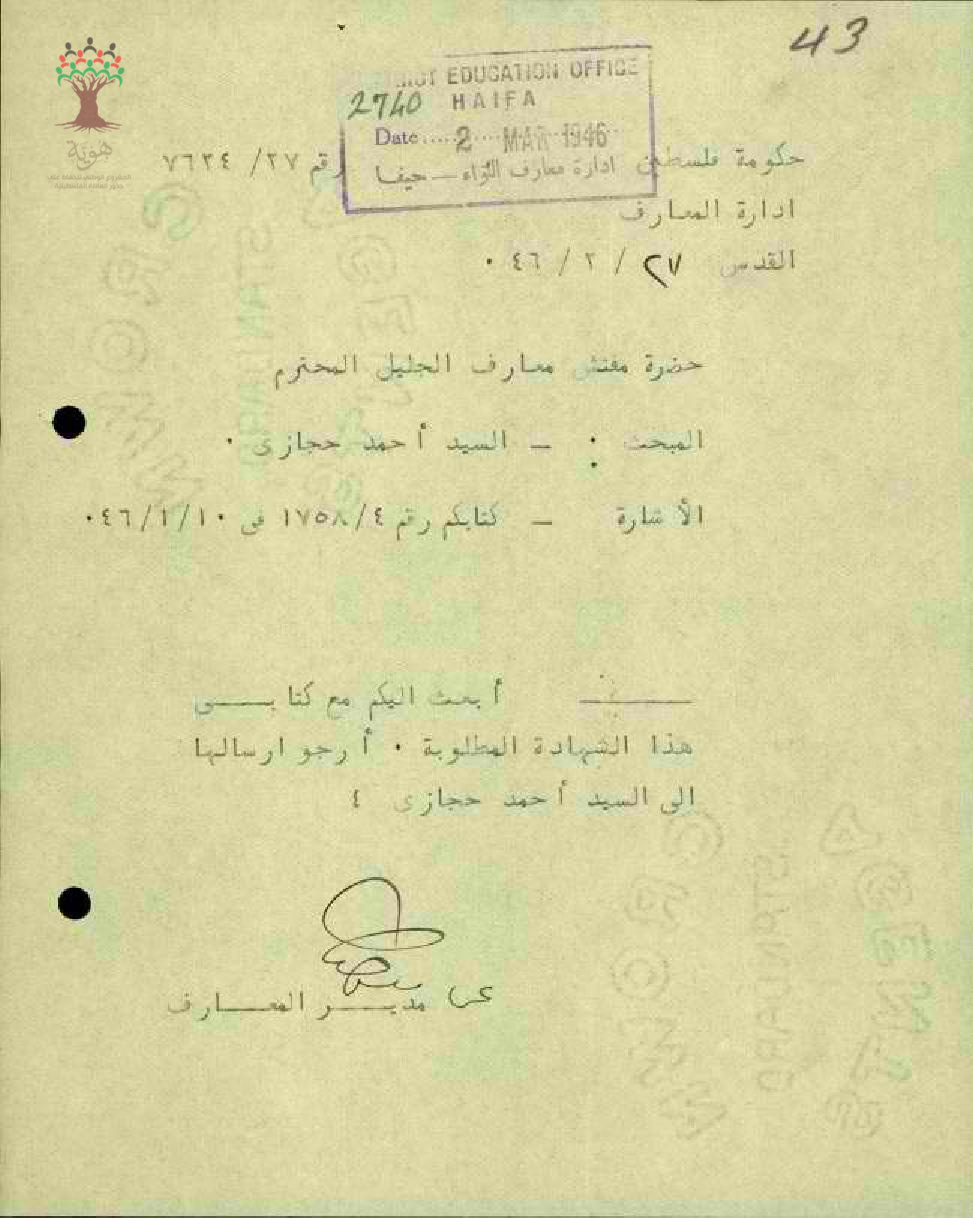 43
EDUCATION OFFICE
2740
HAIFA
Date ..... 2 MAR 1946
ادارة معارف اللواء — حيفا
هوية
حكومة فلسطين رقم ٢٧/ ٧٦٢٤
ادارة المعارف
القدس ٢٧ / ٢ / ٤٦ ٠
حضرة مفتش معارف الجليل المحترم
المبحث : — السيد أحمد حجازى ٠
الأشارة — كتابكم رقم ١٧٥٨/٤ فى ٤٦/١/١٠ ٠
أبعث اليكم مع كتابـــــى
هذا الشهادة المطلوبة ٠ أرجو ارسالها
الى السيد أحمد حجازى ٤
عن مديـــــر المعـــارف